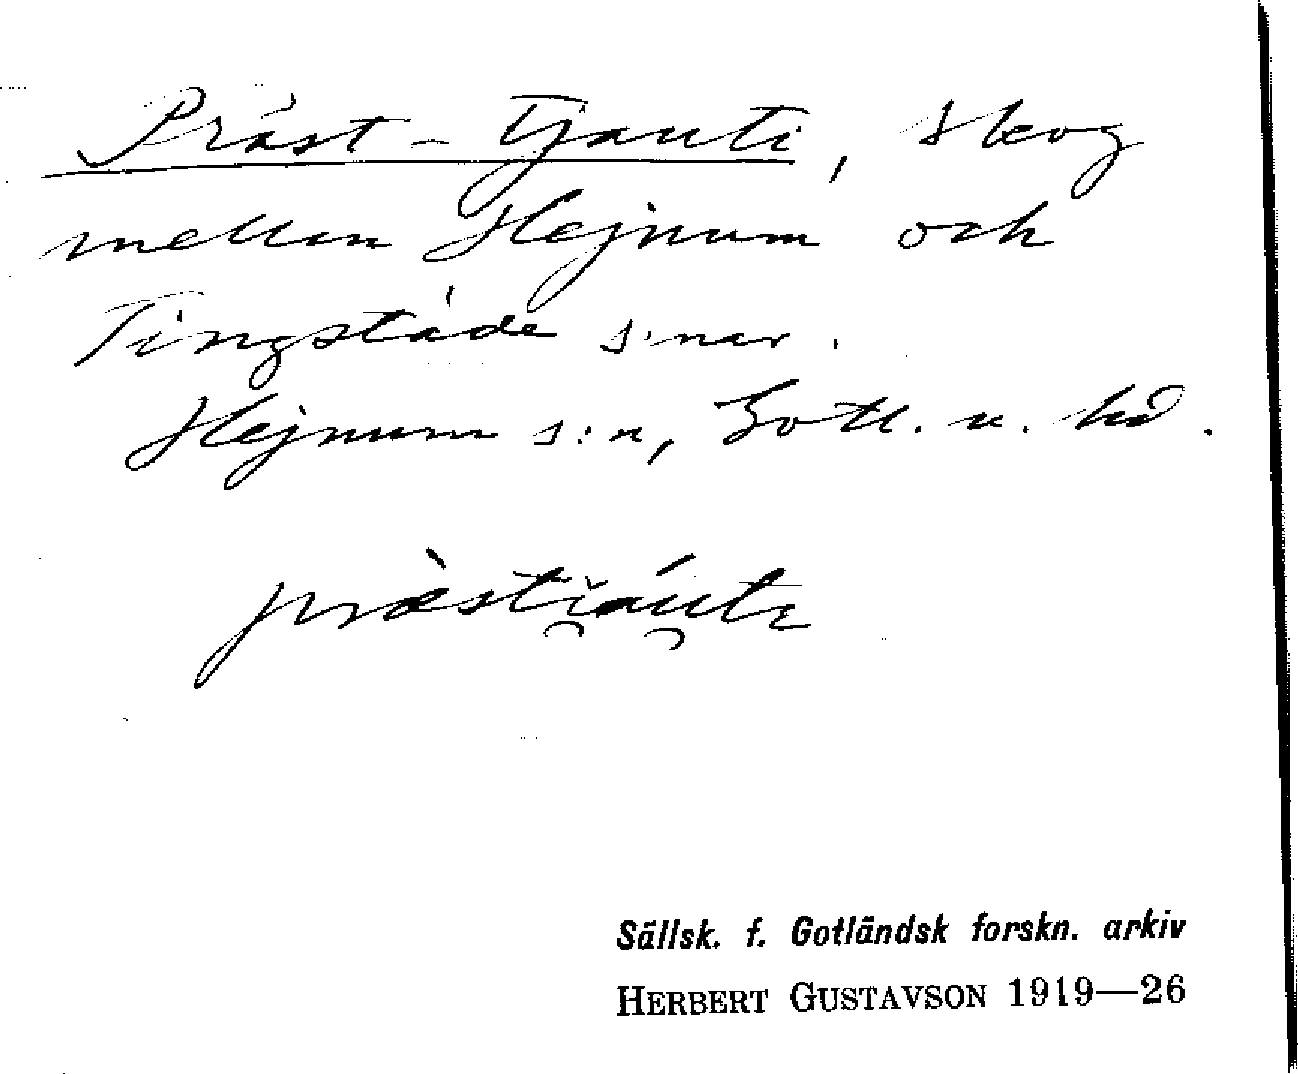 Präst-Tjauti, skog
mellan Hejnum och
Tingstäde s:nar.
Hejnum s:n, Gotl. n. hd.
præ̀sti̯áu̯ti
Sällsk. f. Gotländsk forskn. arkiv
HERBERT GUSTAVSON 1919—26